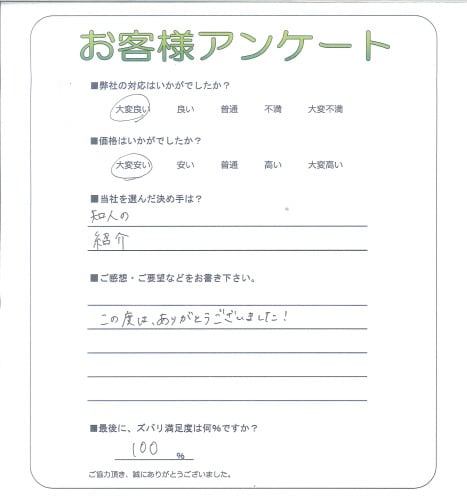 お客様アンケート
■弊社の対応はいかがでしたか?
大変良い 良い 普通 不満 大変不満
■価格はいかがでしたか?
大変安い 安い 普通 高い 大変高い
■当社を選んだ決め手は?
知人の
紹介
■ご感想・ご要望などをお書き下さい。
この度は、ありがとうございました!
■最後に、ズバリ満足度は何%ですか?
100 %
ご協力頂き、誠にありがとうございました。